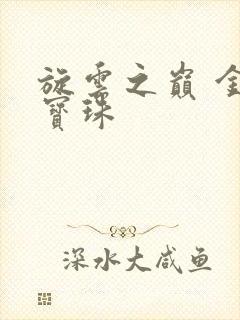 旋雲之巔 金
寶珠
深水大咸鱼